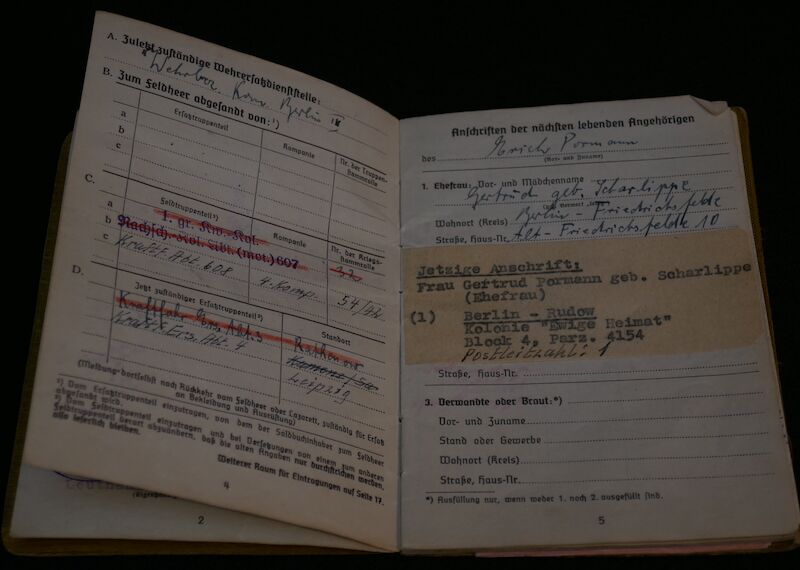 A. Zuletzt zuständige Wehrersatzdienststelle:
Wehrbez. Kom. Berlin IX
B. Zum Feldheer abgesandt von:¹)
Ersatztruppenteil
Kompanie
Nr. der Truppen-
stammrolle
a
b
c
C.
Feldtruppenteil²)
Kompanie
Nr. der Kriegs-
stammrolle
a 1. gr. Kw. Kol. 32
b Nachsch. Kol. Abt. (mot.) 607
c Kraftf. Abt. 608 4. Komp. 54/42
D.
Jetzt zuständiger Ersatztruppenteil²)
Standort
Kraftfahr Ers. Abt. 3 Rathenow
Kraftf. Ers. Abt. 4 Leipzig
(Meldung dortselbst nach Rückkehr vom Feldheer oder Lazarett, zuständig für Ersatz
an Bekleidung und Ausrüstung)
¹) Vom Ersatztruppenteil einzutragen, von dem der Soldbuchinhaber zum Feldheer
abgesandt wird.
²) Vom Feldtruppenteil einzutragen und bei Versetzungen von einem zum anderen
Feldtruppenteil derart abzuändern, daß die alten Angaben nur durchstrichen werden,
also leserlich bleiben.
Weiterer Raum für Eintragungen auf Seite 17.
4
2
Anschriften der nächsten lebenden Angehörigen
des Erich Pormann
(Vor- und Zuname)
1. Ehefrau: Vor- und Mädchenname
Gertrud geb. Scharlippe
Wohnort (Kreis) Berlin - Friedrichsfelde
Straße, Haus-Nr. Alt-Friedrichsfelde 10
Jetzige Anschrift:
Frau Gertrud Pormann geb. Scharlippe
(Ehefrau)
(1) Berlin - Rudow
Kolonie "Ewige Heimat"
Block 4, Parz. 4154
Postleitzahl: 1
Straße, Haus-Nr.
3. Verwandte oder Braut:*)
Vor- und Zuname
Stand oder Gewerbe
Wohnort (Kreis)
Straße, Haus-Nr.
*) Ausfüllung nur, wenn weder 1. noch 2. ausgefüllt sind.
5